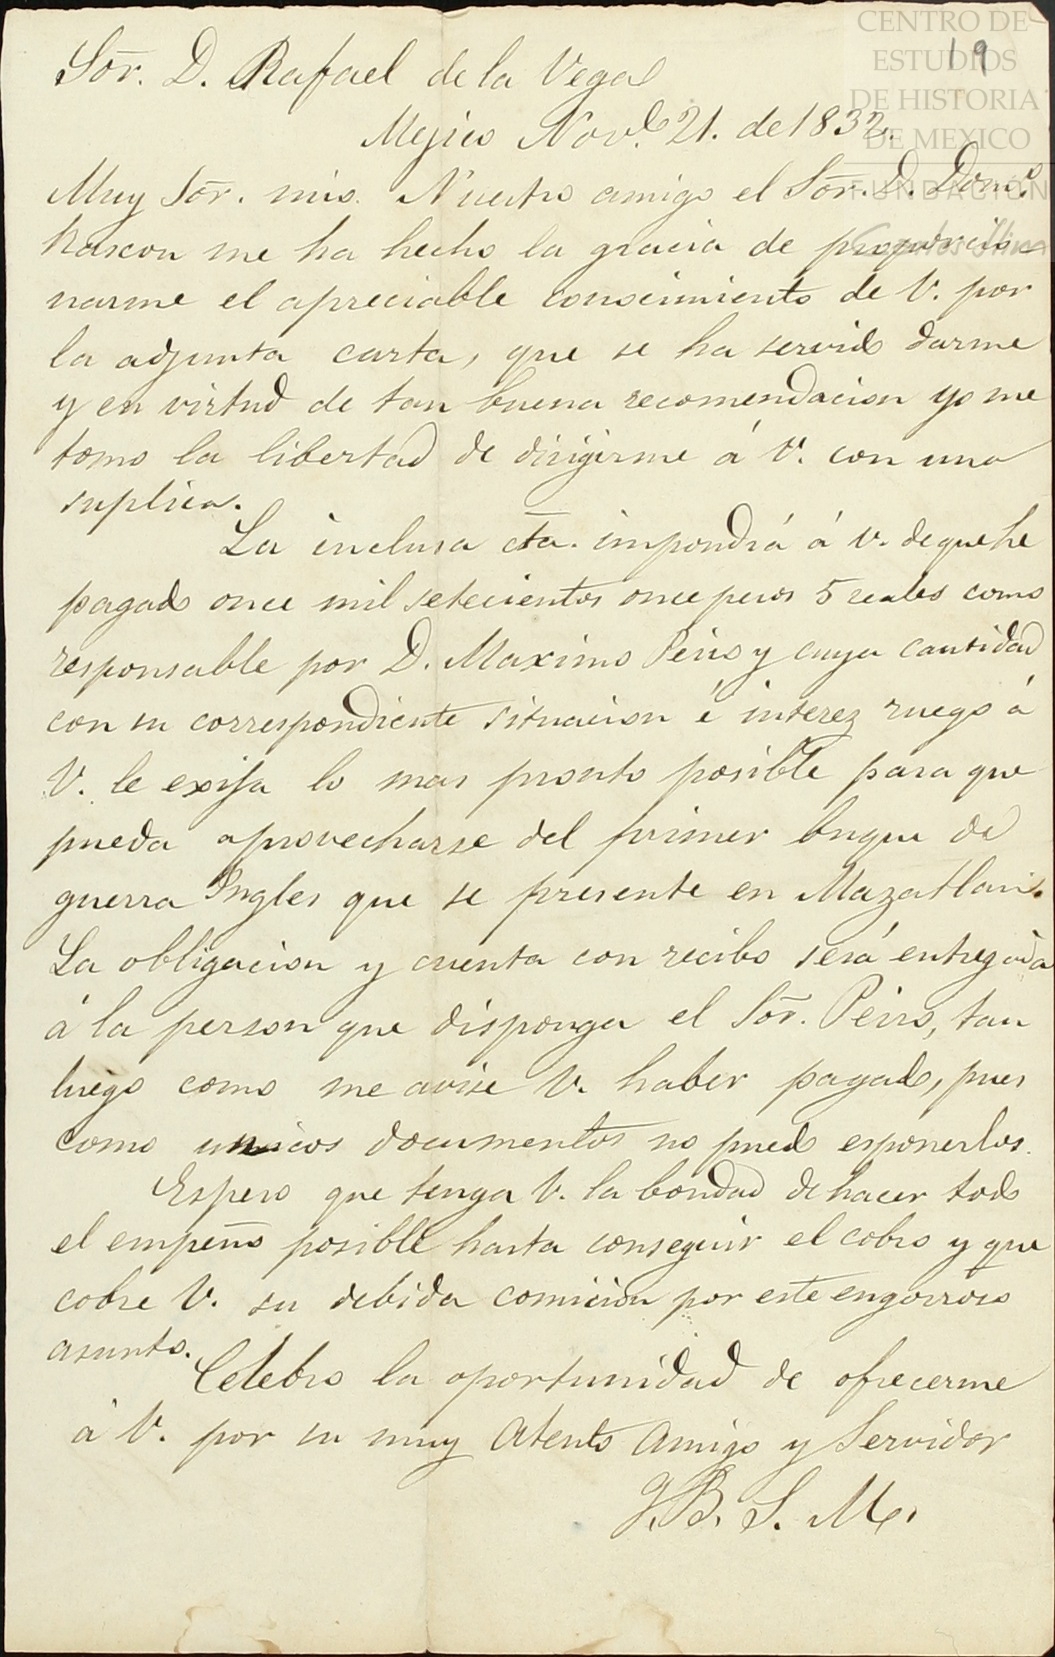 CENTRO DE
ESTUDIOS
DE HISTORIA
DE MEXICO
FUNDACIÓN
19
Sōr. D. Rafael de la Vega
Mejico Nove. 21. de 1832.
Muy Sōr. mio. Nuestro amigo el Sōr. D. Domo.
Rascon me ha hecho la gracia de proporcio
narme el apreciable conocimiento de V. por
la adjunta carta, que se ha servido darme
y en virtud de tan buena recomendacion yo me
tomo la libertad de dirigirme á V. con una
suplica.
La inclusa cta. impondrá á V. de que he
pagado once mil setecientos once pesos 5 reales como
responsable por D. Maximo Peiro y cuya cantidad
con su correspondiente situacion é interez ruego á
V. le exija lo mas pronto posible para que
pueda aprovecharse del primer buque de
guerra Ingles que se presente en Mazatlan.
La obligacion y cuenta con recibo será entregada
á la person que disponga el Sōr. Peiro, tan
luego como me avise V. haber pagado, pues
como unicos documentos no puedo esponerlos.
Espero que tenga V. la bondad de hacer todo
el empeño posible hasta conseguir el cobro y que
cobre V. su debida comicion por este engorroso
asunto.
Celebro la oportunidad de ofrecerme
á V. por su muy Atento Amigo y Servidor
Q. B. S. M.